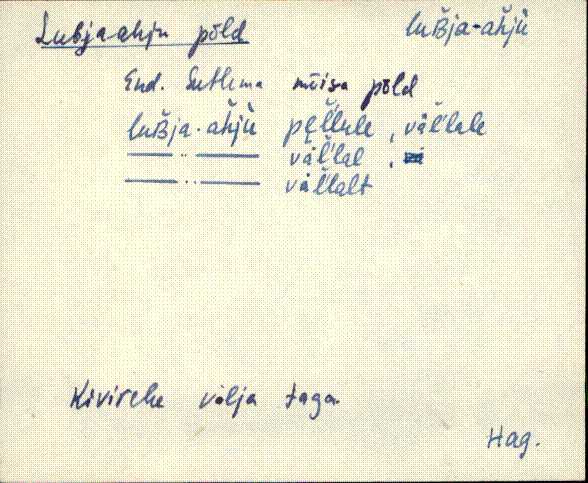 Lubja-ahju põld
luʙ̌ja-ahjù
End. Sutlema mõisa põld
luʙ̌ja-ahjù pẹl̆lule, väl̆lale
—— ·· —— väl̆lal,
—— ·· —— väl̆lalt
Kivirehe välja taga
Hag.